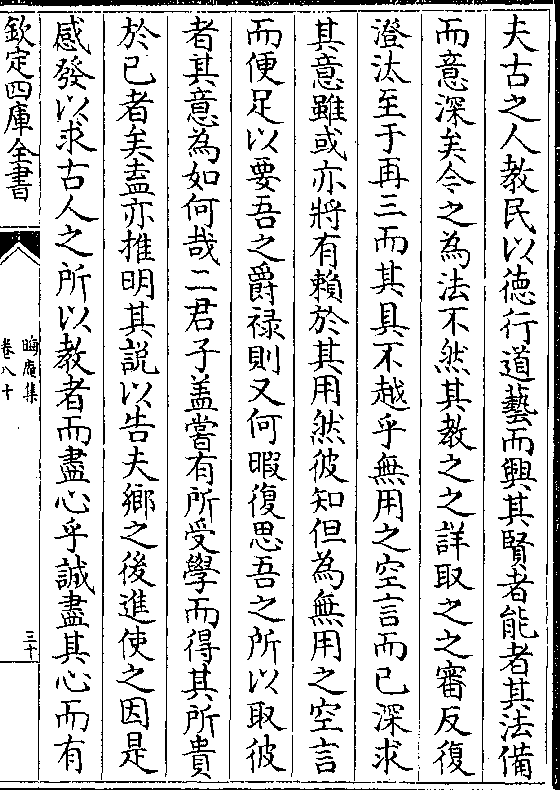 夫古之人教民以德行道藝而興其賢者能者其法備
而意深矣今之為法不然其教之之詳取之之審反復
澄汰至于再三而其具不越乎無用之空言而已深求
其意雖或亦將有賴於其用然彼知但為無用之空言
而便足以要吾之爵禄則又何暇復思吾之所以取彼
者其意為如何哉二君子盖嘗有所受學而得其所貴
於已者矣盍亦推明其説以告夫鄉之後進使之因是
感發以求古人之所以教者而盡心乎誠盡其心而有
欽定四庫全書
晦庵集
卷八十
三十